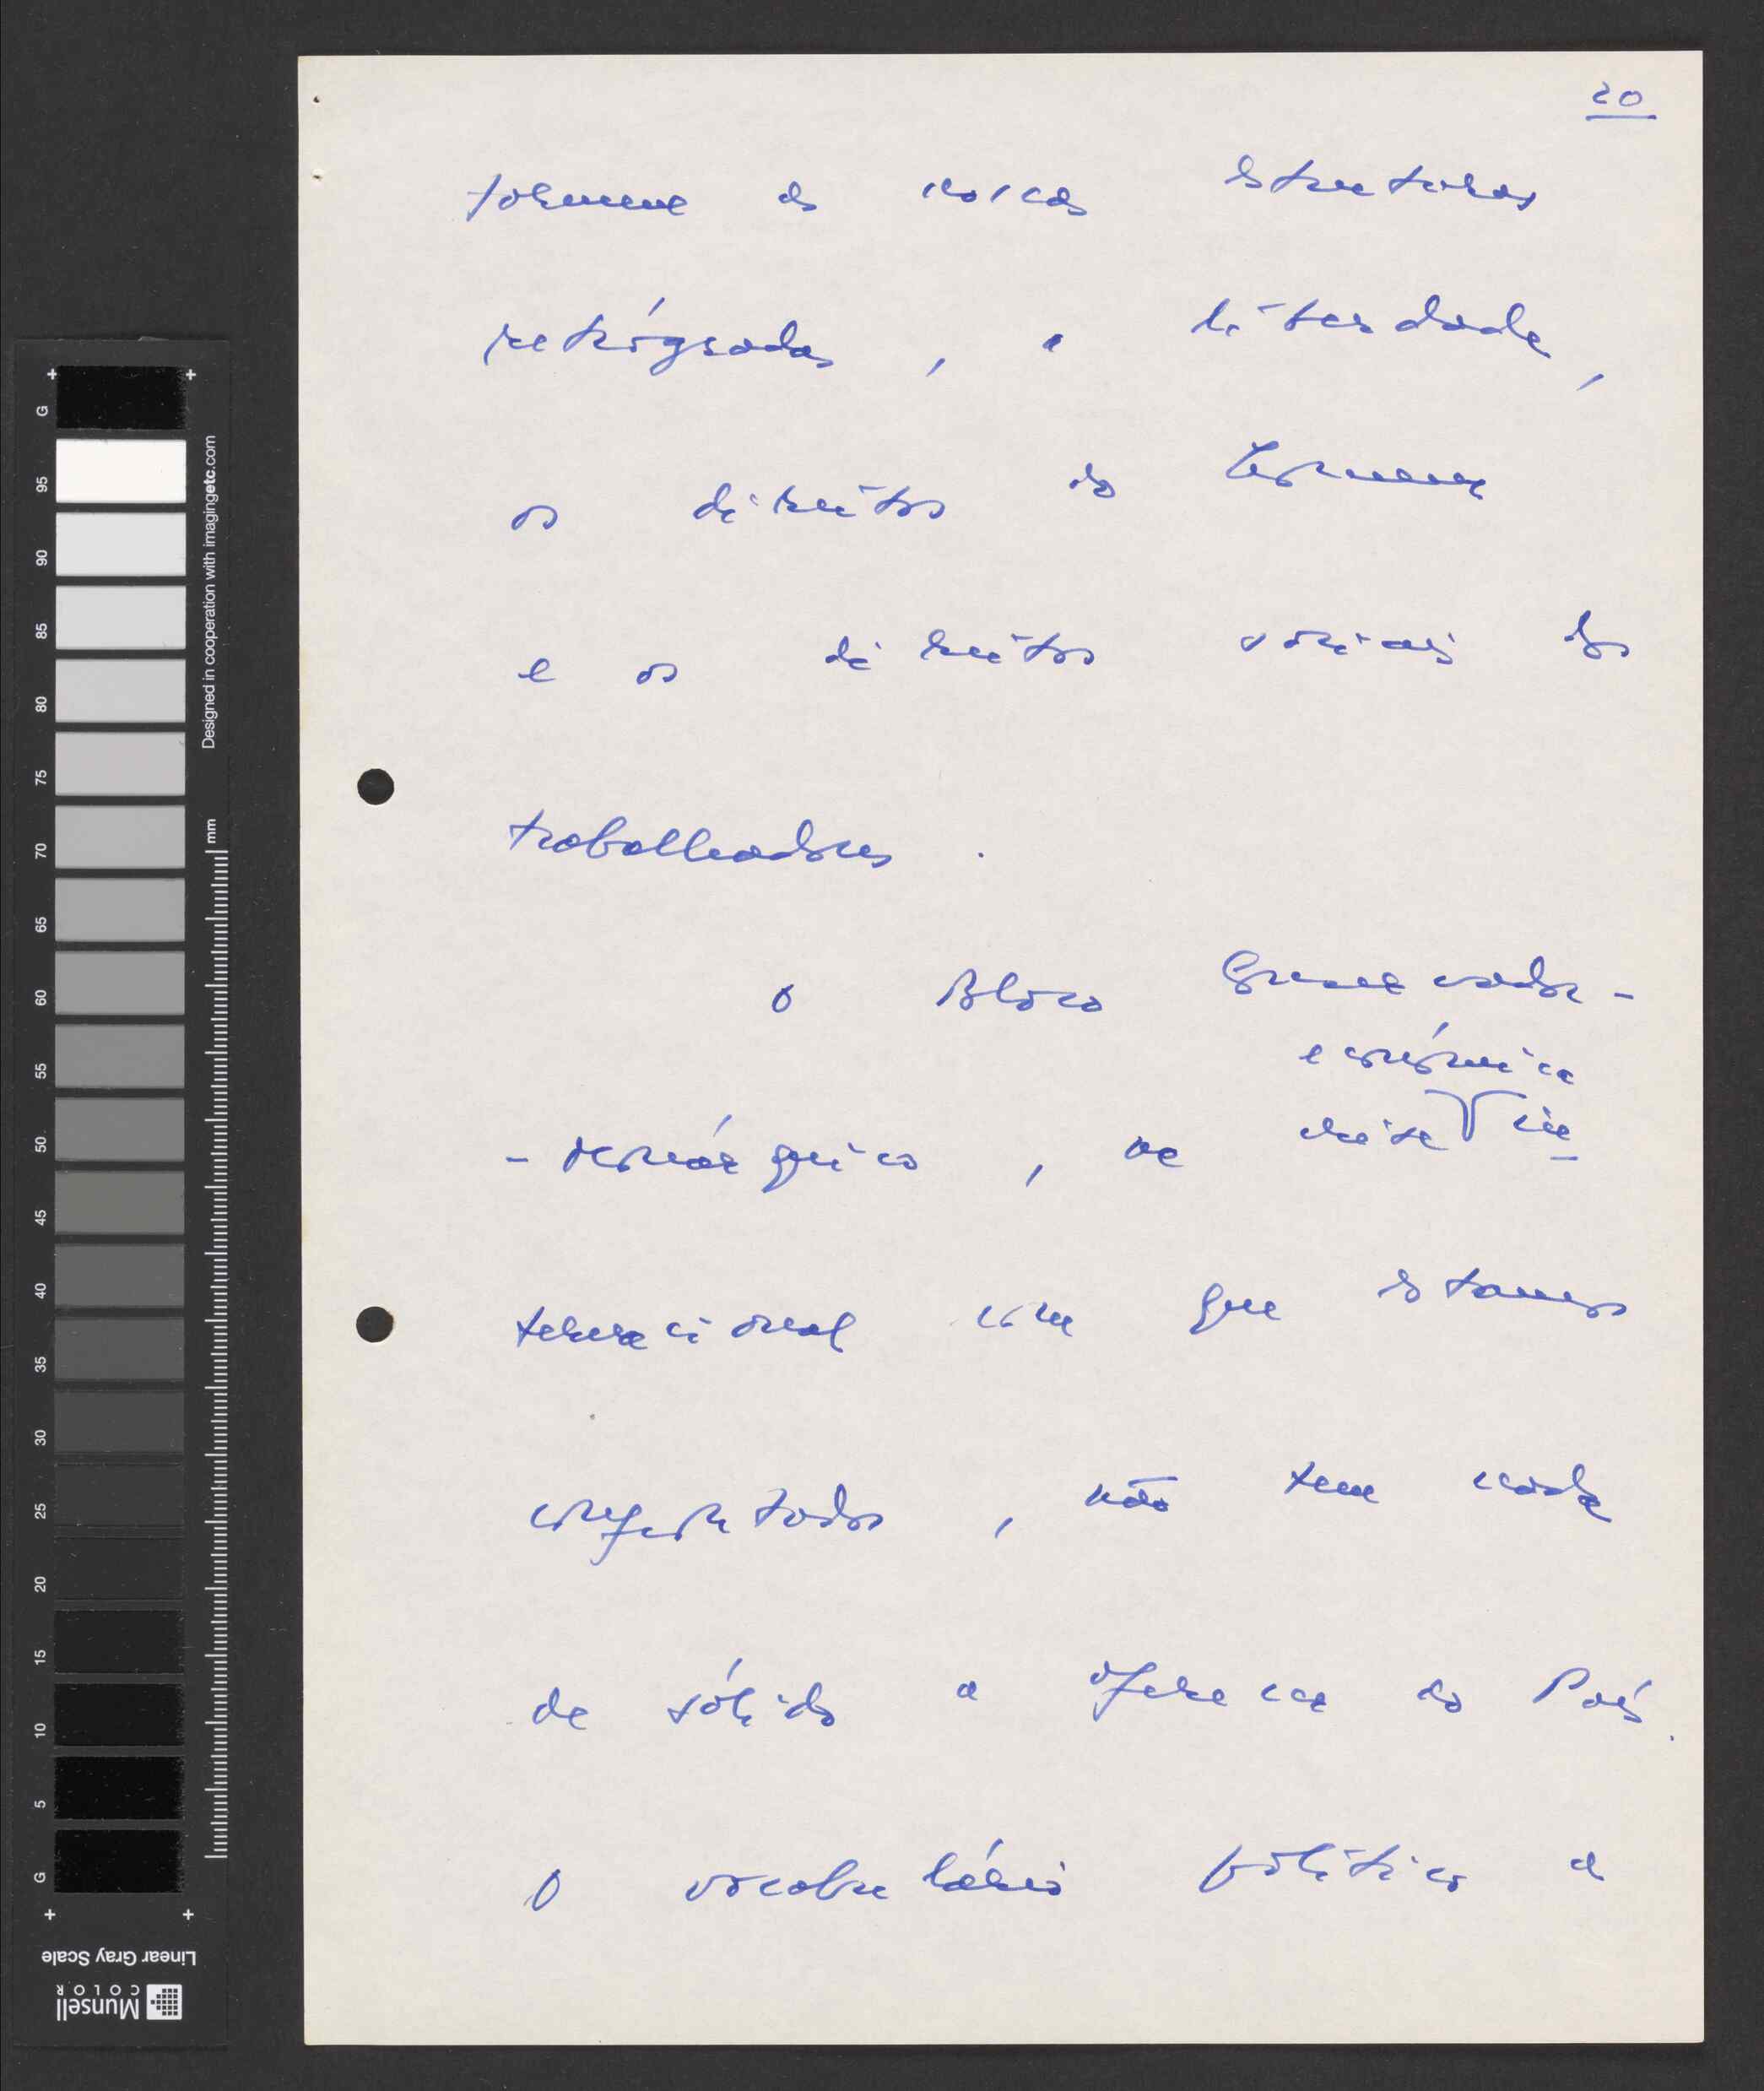 20
as nossas estruturas
retrógradas, a liberdade,
os direitos do homem
e os direitos sociais dos
trabalhadores.
O Bloco Conservador-
económica
-monárquico, na crise in
ternacional com que estamos
confrontados, não tem nada
de sólido a oferecer ao País.
O vocabulário político a
G 95 90 85 80 75 70 65 60 55 50 45 40 35 30 25 20 15 10 5 G
mm
Designed in cooperation with imagingetc.com
Linear Gray Scale
Munsell
COLOR